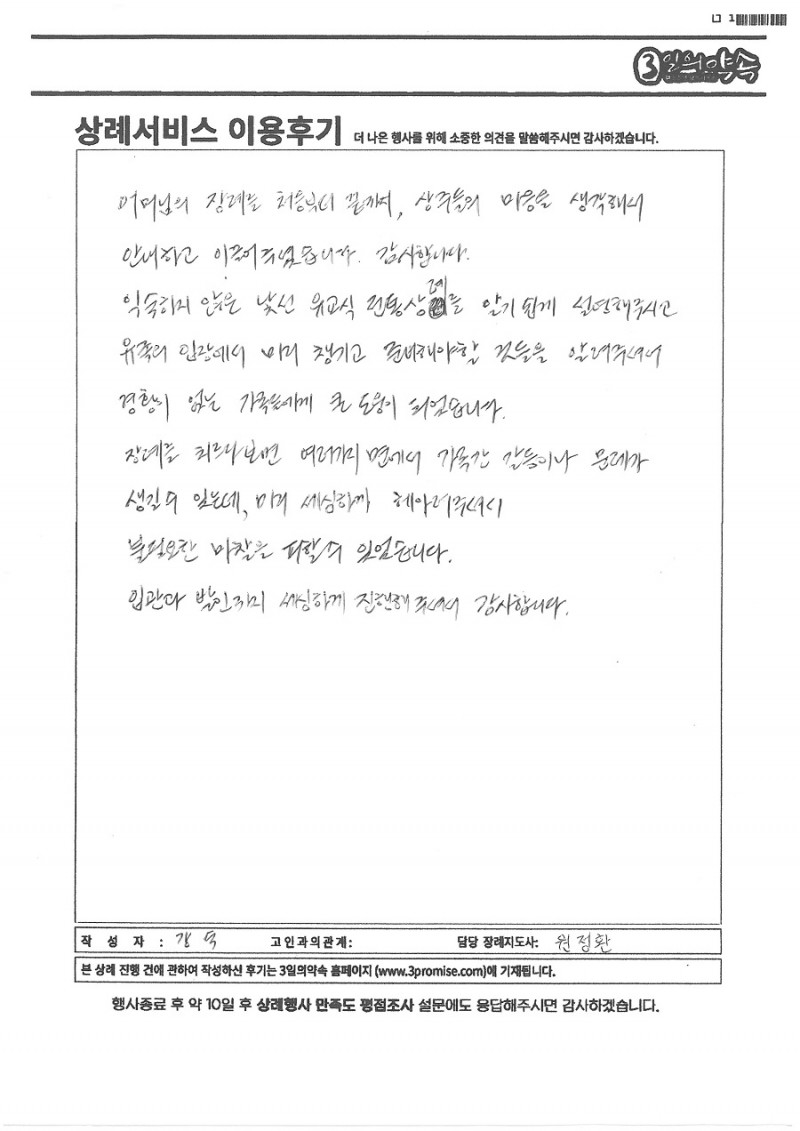 3일의약속
상례서비스 이용후기 더 나은 행사를 위해 소중한 의견을 말씀해주시면 감사하겠습니다.
어머님의 장례를 처음부터 끝까지, 상주들의 마음을 생각해서
안내하고 이끌어주셨습니다. 감사합니다.
익숙하지 않은 낯선 유교식 전통상례를 알기 쉽게 설명해주시고
유족의 입장에서 미리 챙기고 준비해야할 것들을 알려주셔서
경황이 없는 가족들에게 큰 도움이 되었습니다.
장례를 치르다보면 여러가지 면에서 가족간 갈등이나 문제가
생길수 있는데, 미리 세심하게 헤아려주셔서
불필요한 마찰을 피할수 있었습니다.
입관과 발인까지 세심하게 진행해 주셔서 감사합니다.
작 성 자 : 강 고인과의관계: 담당 장례지도사: 원정환
본 상례 진행 건에 관하여 작성하신 후기는 3일의약속 홈페이지 (www.3promise.com)에 기재됩니다.
행사종료 후 약 10일 후 상례행사 만족도 평점조사 설문에도 응답해주시면 감사하겠습니다.